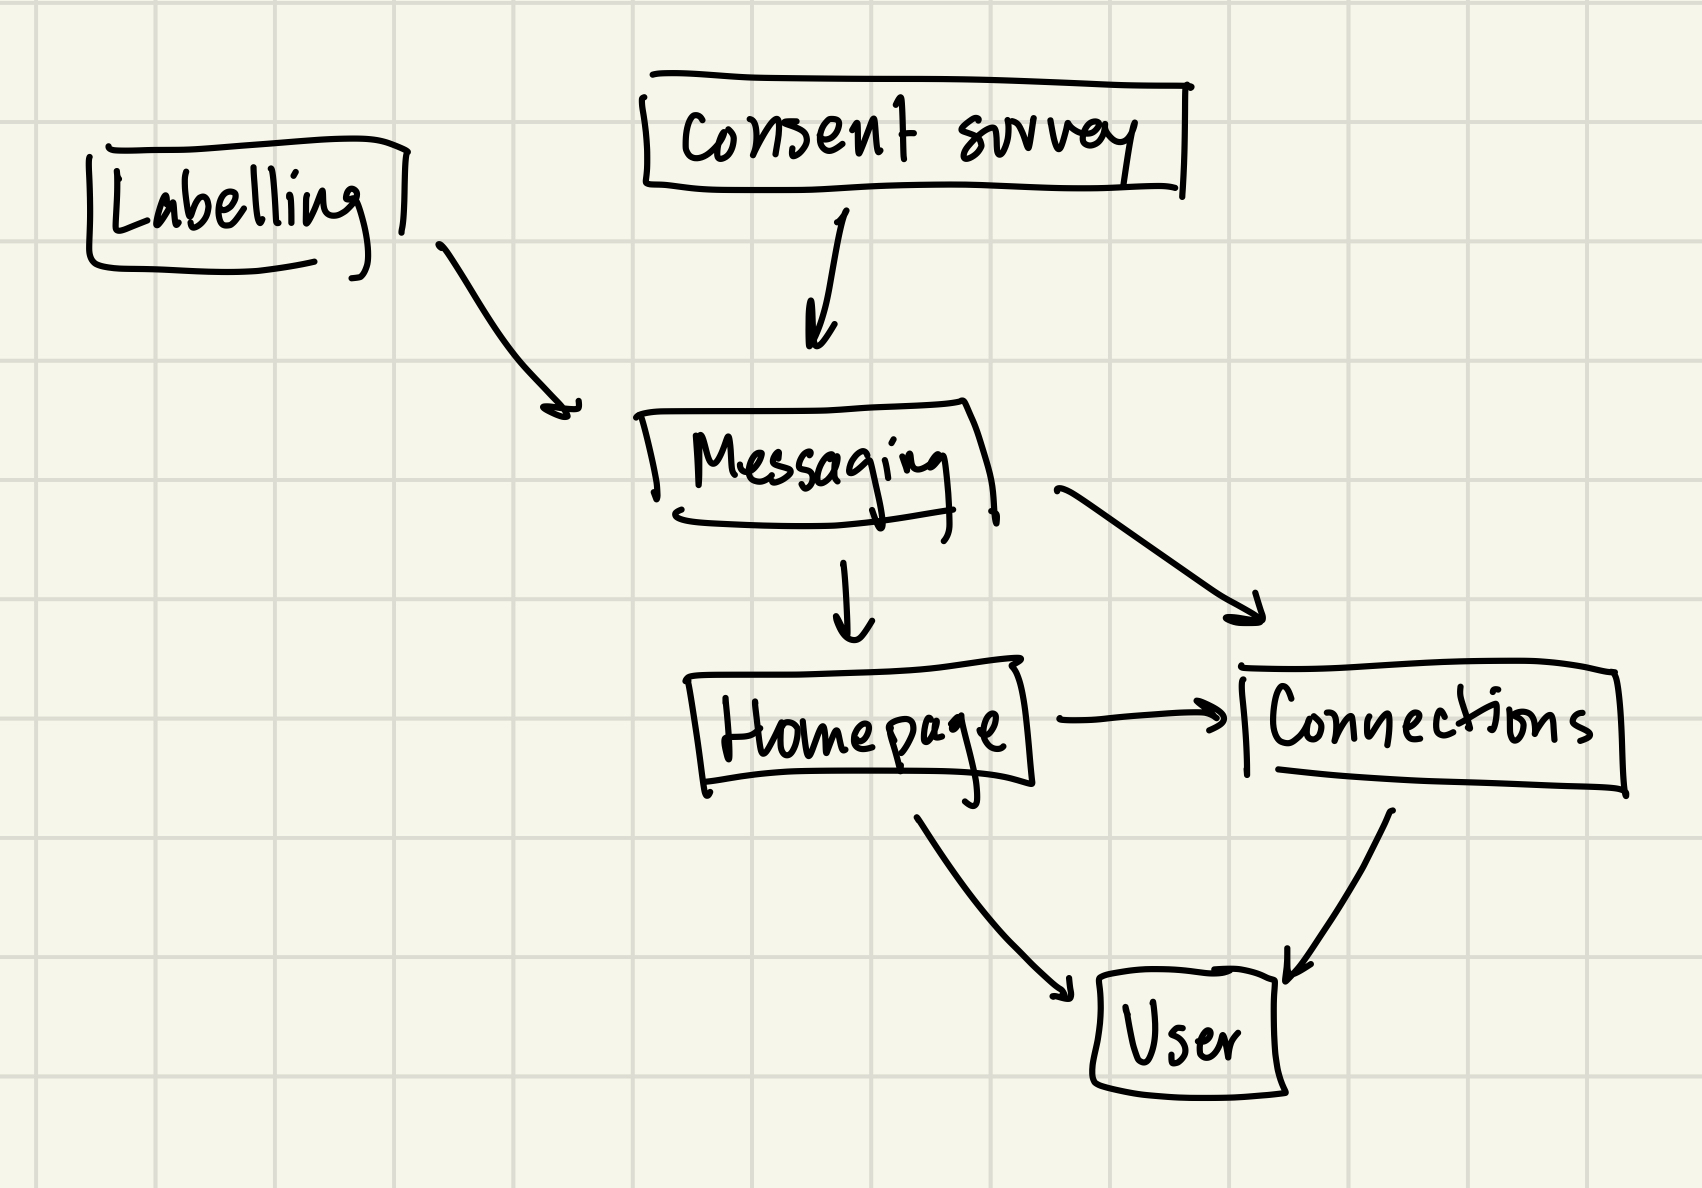 Consent survey
Labelling
Messaging
Homepage
Connections
User